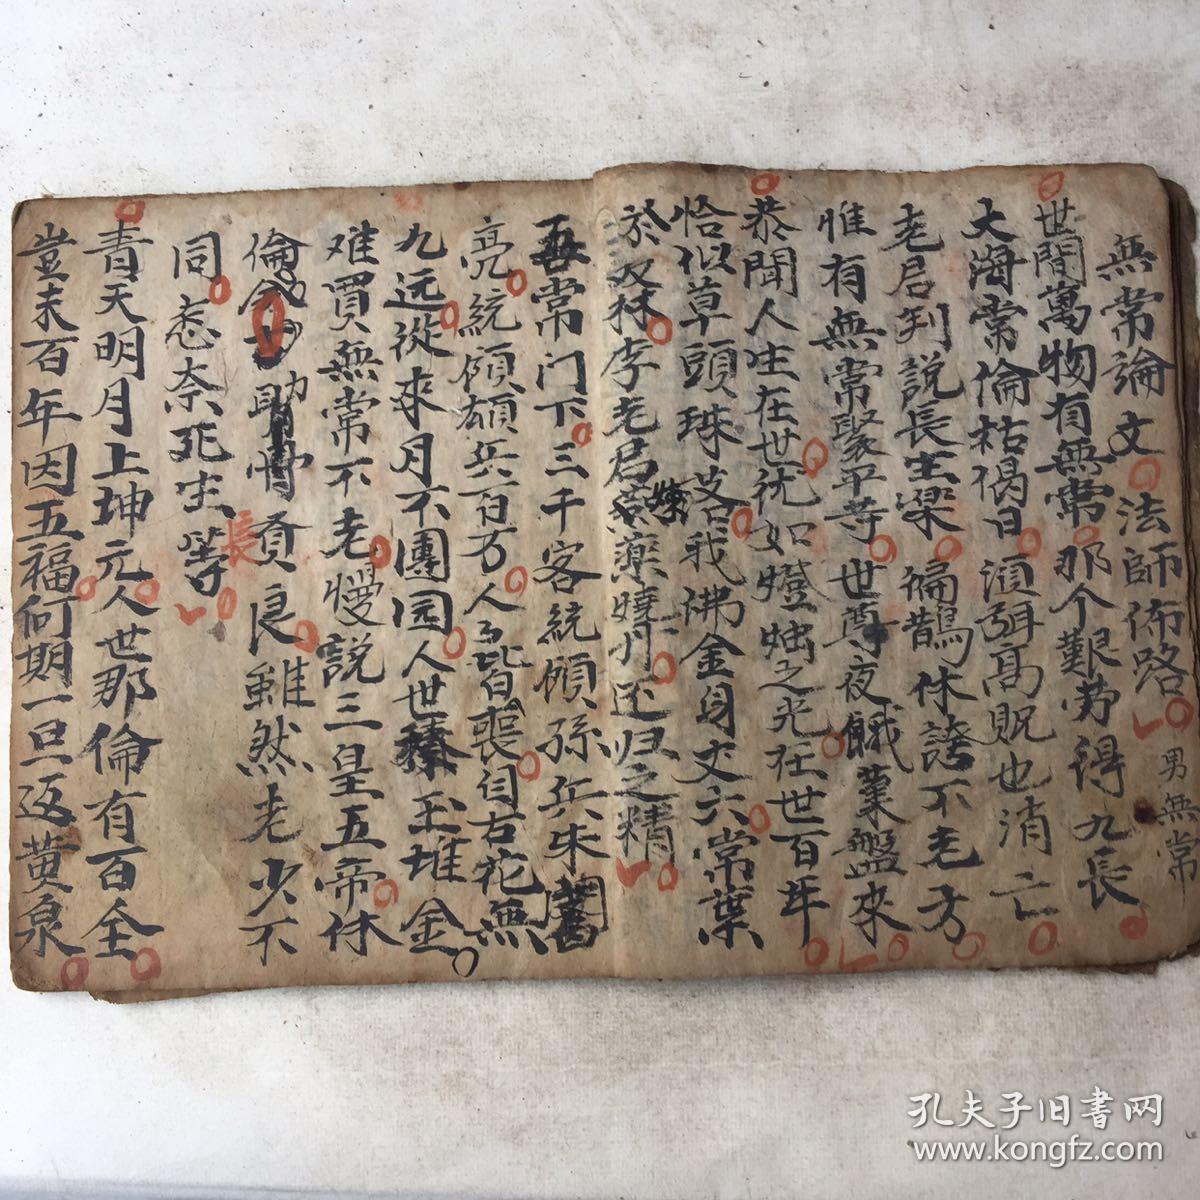 無常論文法師佈路男無常
世間萬物有無常那个艱劳得九長
大海常倫枯偈日須弭高貺也消亡
老君到說長生樂徧鵲休誇不老方
惟有無常聚平寺世尊夜餓菓盤來
恭聞人生在世犹如燈之光在世百年
恰似草頭珠我佛金身丈六常葉
於双林李老君藥燒丹还归之精
無常门下三千客統領孫兵朱
亮統領雄兵百万人皆喪自古花無
九远從來月不團园人世玉堆金
难買無常不老慢說三皇五帝休
倫助賁良雖然老少不
同惹奈死生等
長
青天明月上坤元人世那倫有百全
豈未百年因五福何期一旦返黄泉
孔夫子旧书网
www.kongfz.com